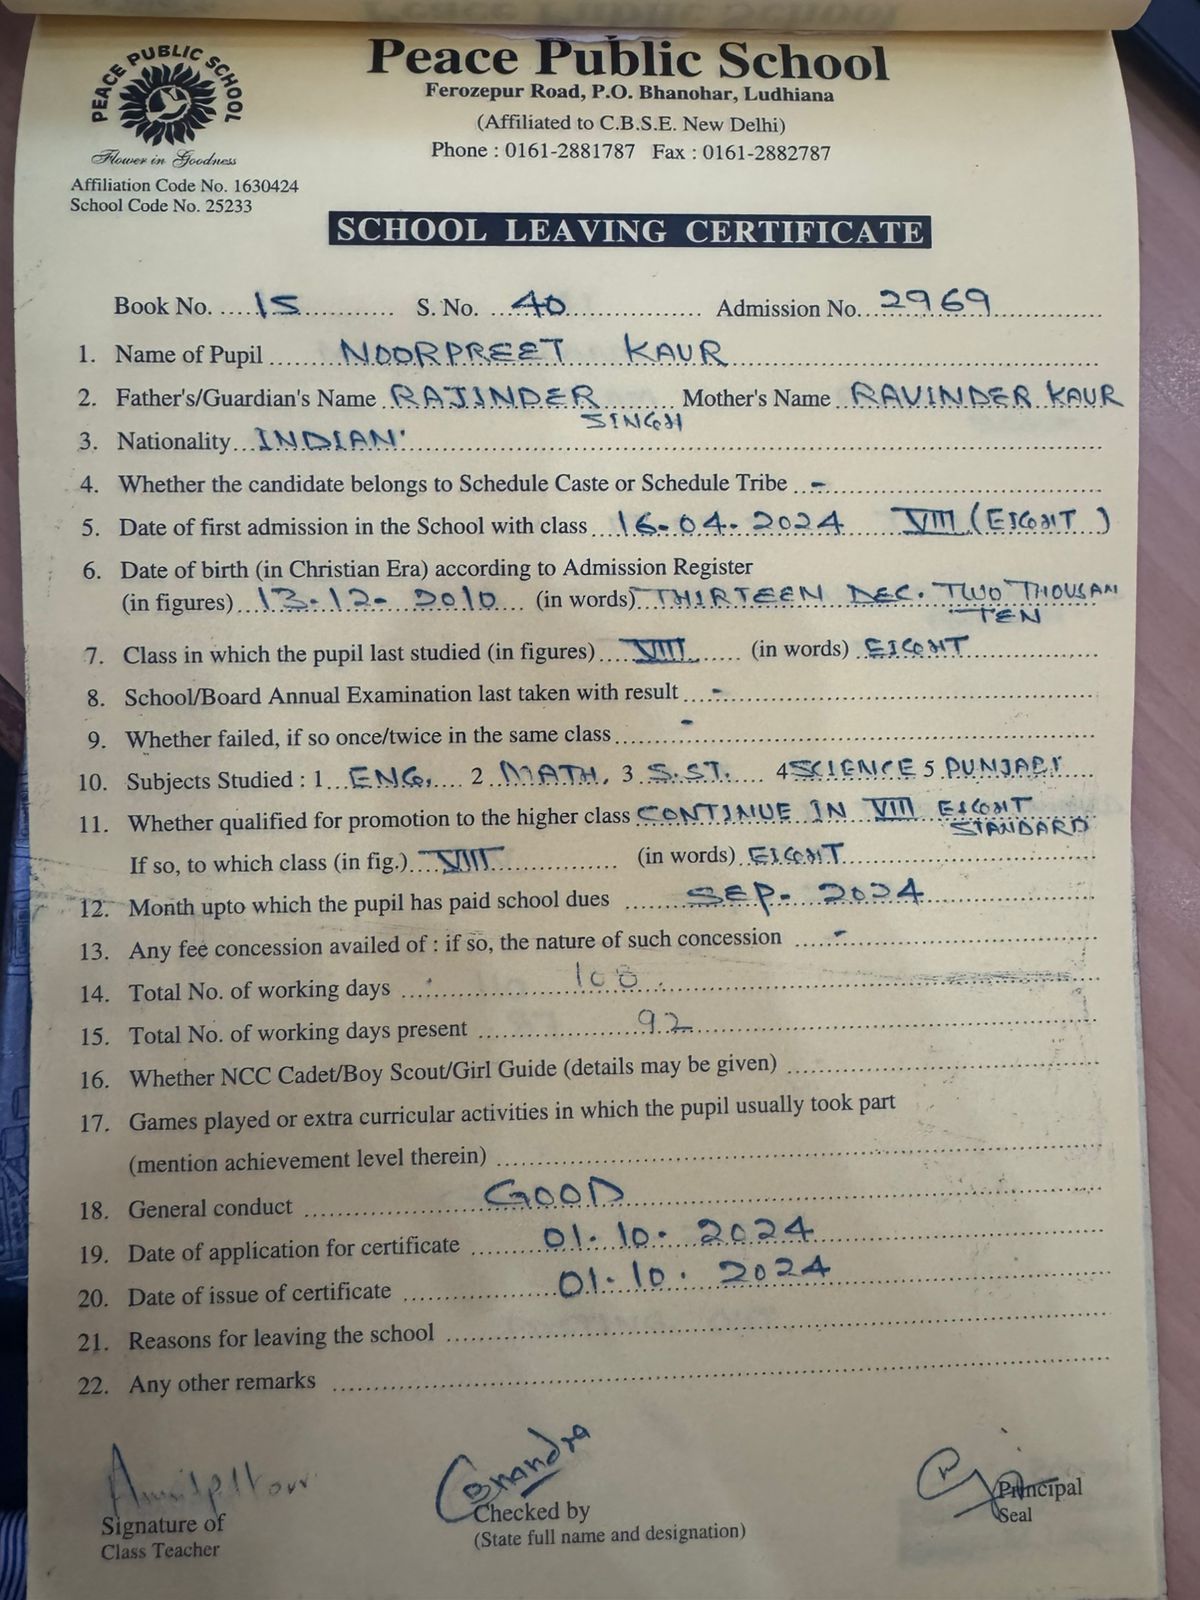 PEACE PUBLIC SCHOOL
Flower in Goodness
Affiliation Code No. 1630424
School Code No. 25233
Peace Public School
Ferozepur Road, P.O. Bhanohar, Ludhiana
(Affiliated to C.B.S.E. New Delhi)
Phone : 0161-2881787 Fax : 0161-2882787
SCHOOL LEAVING CERTIFICATE
Book No. 15 S. No. 40 Admission No. 2969
1. Name of Pupil NOORPREET KAUR
2. Father's/Guardian's Name RAJINDER SINGH Mother's Name RAVINDER KAUR
3. Nationality INDIAN
4. Whether the candidate belongs to Schedule Caste or Schedule Tribe -
5. Date of first admission in the School with class 16-04-2024 VIII (EIGHT)
6. Date of birth (in Christian Era) according to Admission Register
(in figures) 13-12-2010 (in words) THIRTEEN DEC. TWO THOUSAN TEN
7. Class in which the pupil last studied (in figures) VIII (in words) EIGHT
8. School/Board Annual Examination last taken with result -
9. Whether failed, if so once/twice in the same class -
10. Subjects Studied : 1 ENG. 2 MATH. 3 S.ST. 4 SCIENCE 5 PUNJABI
11. Whether qualified for promotion to the higher class CONTINUE IN VIII EIGHT STANDARD
If so, to which class (in fig.) VIII (in words) EIGHT
12. Month upto which the pupil has paid school dues SEP- 2024
13. Any fee concession availed of : if so, the nature of such concession -
14. Total No. of working days 108
15. Total No. of working days present 92
16. Whether NCC Cadet/Boy Scout/Girl Guide (details may be given)
17. Games played or extra curricular activities in which the pupil usually took part
(mention achievement level therein)
18. General conduct GOOD
19. Date of application for certificate 01.10.2024
20. Date of issue of certificate 01.10.2024
21. Reasons for leaving the school
22. Any other remarks
Signature of
Class Teacher
Checked by
(State full name and designation)
Principal
Seal